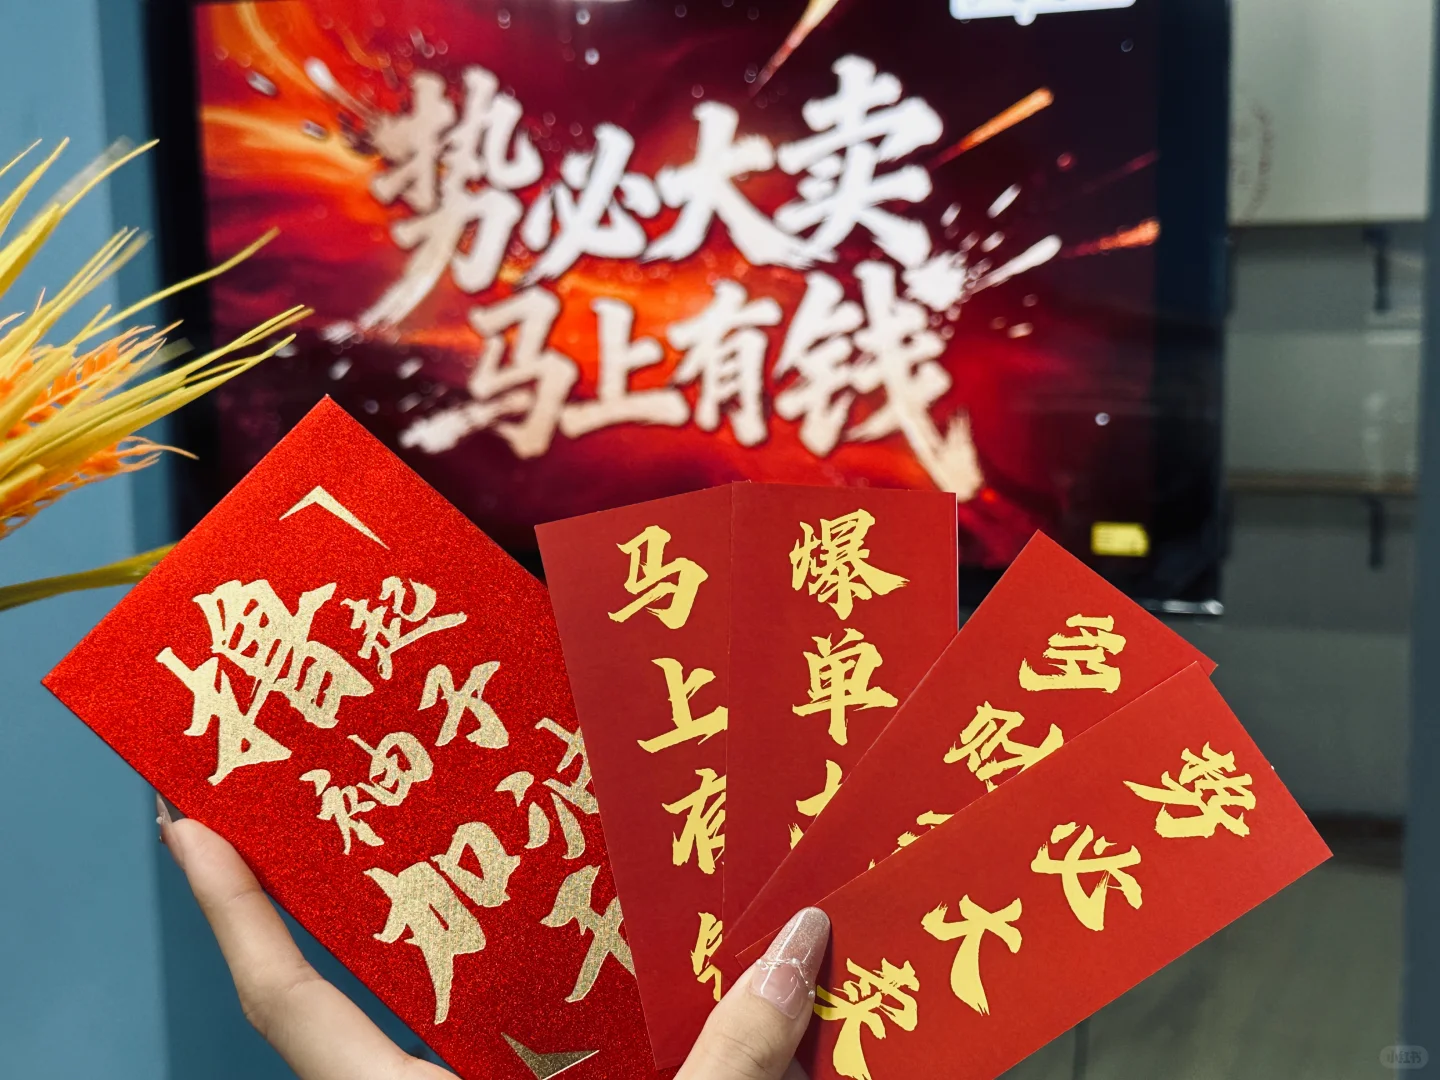 势必大卖
马上有钱
撸起
袖子
加油
干
马上有
爆单
势必大
小红书